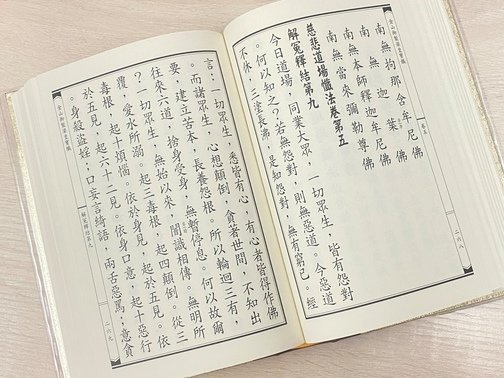 卷五
二六八
南無拘那含牟尼佛
南無迦葉佛
南無本師釋迦牟尼佛
南無當來彌勒尊佛
慈悲道場懺法卷第五
解冤釋結第九
今日道場,同業大眾,一切眾生,皆有怨對
。何以知之?若無怨對,則無惡道。今惡道
不休,三塗長沸,是知怨對,無有窮已。經
言:一切眾生,悉皆有心,有心者皆得作佛
。而諸眾生,心想顛倒,貪著世間,不知出
要,建立苦本,長養怨根。所以輪迴三有,
往來六道,捨身受身,無暫停息。何以故爾
?一切眾生,無始以來,闇識相傳,無明所
覆,愛水所溺。起三毒根,起四顛倒。從三
毒根,起十煩惱。依於身見,起於五見。依
於五見,起六十二見。依身口意,起十惡行
。身殺盜婬;口妄言綺語、兩舌惡罵;意貪
解冤釋結第九
二六九